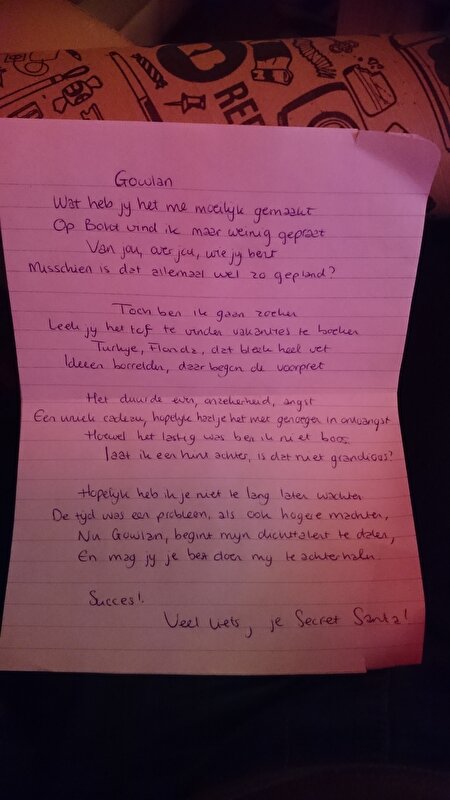 RE
Gowlan
Wat heb jy het me moeilyk gemaakt
Op Bord vind ik maar weinig gepraat
Van jou, over jou, wie jy bent
Misschien is dat allemaal wel zo gepland?
Toch ben ik gaan zoeken
Leek jy het tof te vinden vakanties te boeken
Turkye, Florida, dat bleek heel vet
Ideeen borrelden, daar begon de voorpret
Het duurde even, onzekerheid, angst
Een uniek cadeau, hopelyk had je het met genoegen in ontvangst
Hoewel het lastig was ben ik niet boos
laat ik een hint achter, is dat niet grandioos?
Hopelyk heb ik je niet te lang laten wachten
De tyd was een probleem, als ook hogere machten,
Nu Gowlan, begint myn dichttalent te dalen,
En mag jy je best doen my te achterhalen.
Succes!
Veel liefs, je Secret Santa!